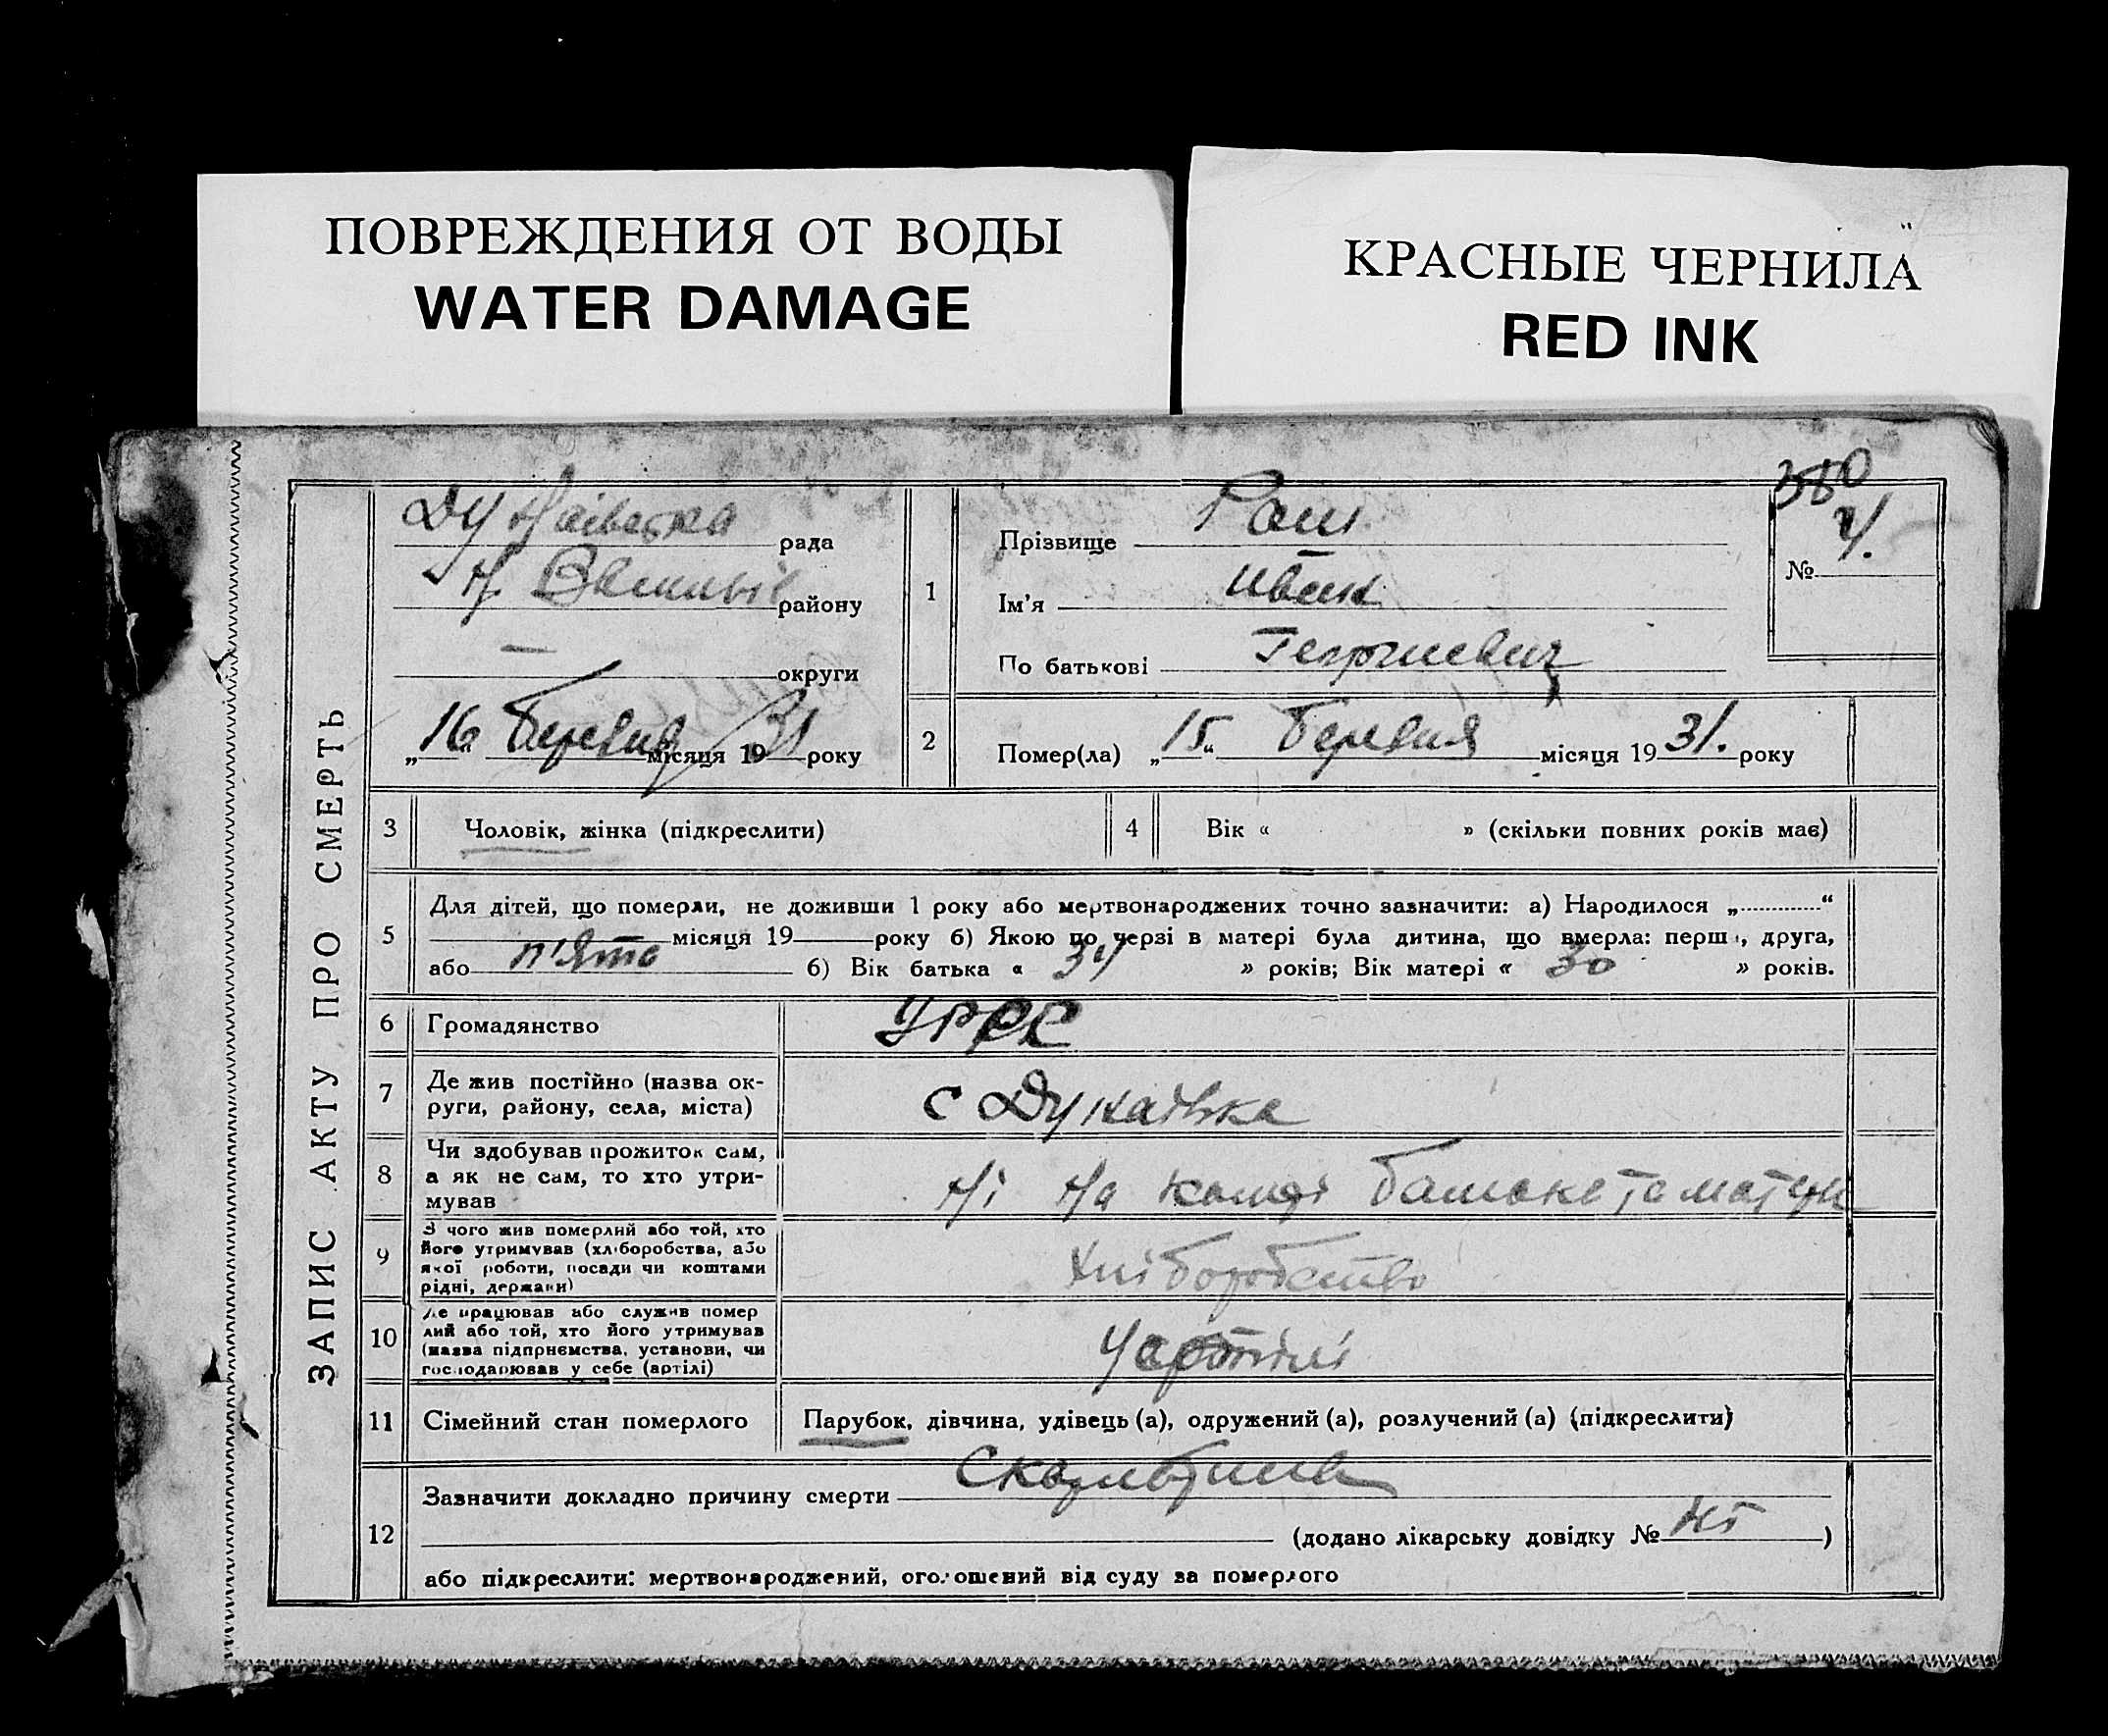 ПОВРЕЖДЕНИЯ ОТ ВОДЫ
WATER DAMAGE
КРАСНЫЕ ЧЕРНИЛА
RED INK
ЗАПИС АКТУ ПРО СМЕРТЬ
Дунаівська рада
району
— округи
„16“ Березня місяця 1931 року
№ 4.
1 Прізвище Раш
Ім'я Иван
По батькові Георгиевич
2 Помер(ла) „15“ Березня місяця 1931. року
3 Чоловік, жінка (підкреслити)
4 Вік « » (скільки повних років має)
5 Для дітей, що померли, не доживши 1 року або мертвонароджених точно зазначити: а) Народилося „ “
— місяця 19 року б) Якою по черзі в матері була дитина, що вмерла: перша, друга,
або п'ято б) Вік батька « 34 » років; Вік матері « 30 » років.
6 Громадянство УРСР
7 Де жив постійно (назва ок-
руги, району, села, міста)
с Дунаівка
8 Чи здобував прожиток сам,
а як не сам, то хто утри-
мував
Ні На кошті батька та матери
9 З чого жив померлий або той, хто
його утримував (хліборобства, або
якої роботи, посади чи коштами
рідні, держави)
Хліборобство
10 Де працював або служив помер
лий або той, хто його утримував
(назва підприємства, установи, чи
господарював у себе (артілі)
У артілі
11 Сімейний стан померлого Парубок, дівчина, удівець (а), одружений (а), розлучений (а) (підкреслити)
12 Зазначити докладно причину смерти
(додано лікарську довідку № Ні )
або підкреслити: мертвонароджений, оголошений від суду за померлого